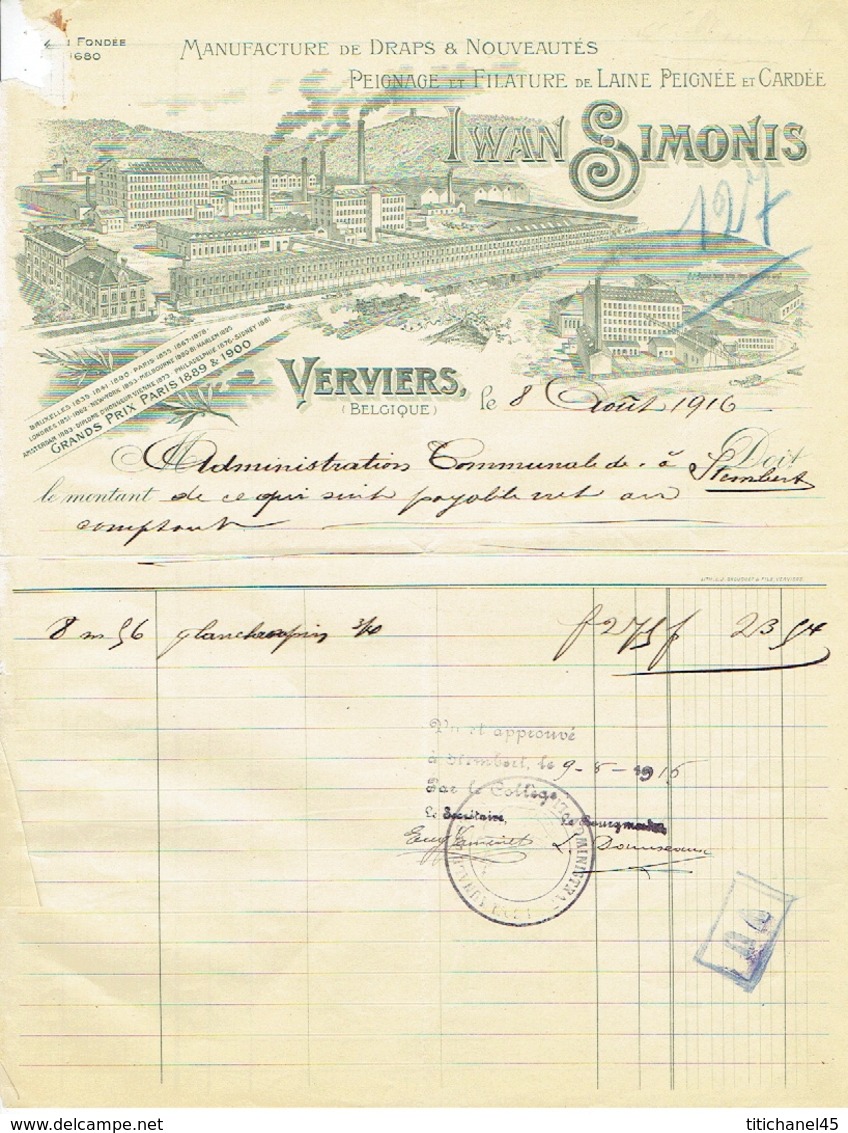 N FONDÉE
1680
MANUFACTURE DE DRAPS & NOUVEAUTÉS
PEIGNAGE ET FILATURE DE LAINE PEIGNÉE ET CARDÉE
IWAN SIMONIS
127
BRUXELLES 1835-1841-1880-PARIS 1855-1867-1878-
LONDRES 1851-1862-NEW-YORK 1853-MELBOURNE 1880-81 HARLEM 1825
AMSTERDAM 1883-DIPLOME D'HONNEUR VIENNE 1873-PHILADELPHIE 1876-SIDNEY 1881
GRANDS PRIX PARIS 1889 & 1900
VERVIERS,
(BELGIQUE)
le 8 Août 1916
Administration Communale de à Stembert Doit
le montant de ce qui suit payable net au
comptant
8 m 56 planches pin 3/4 f 275 f 23 54
Vu et approuvé
à Stembert, le 9-8-1916
Par le Collège
Le Secrétaire, Le Bourgmestre
delcampe.net
titichanel45